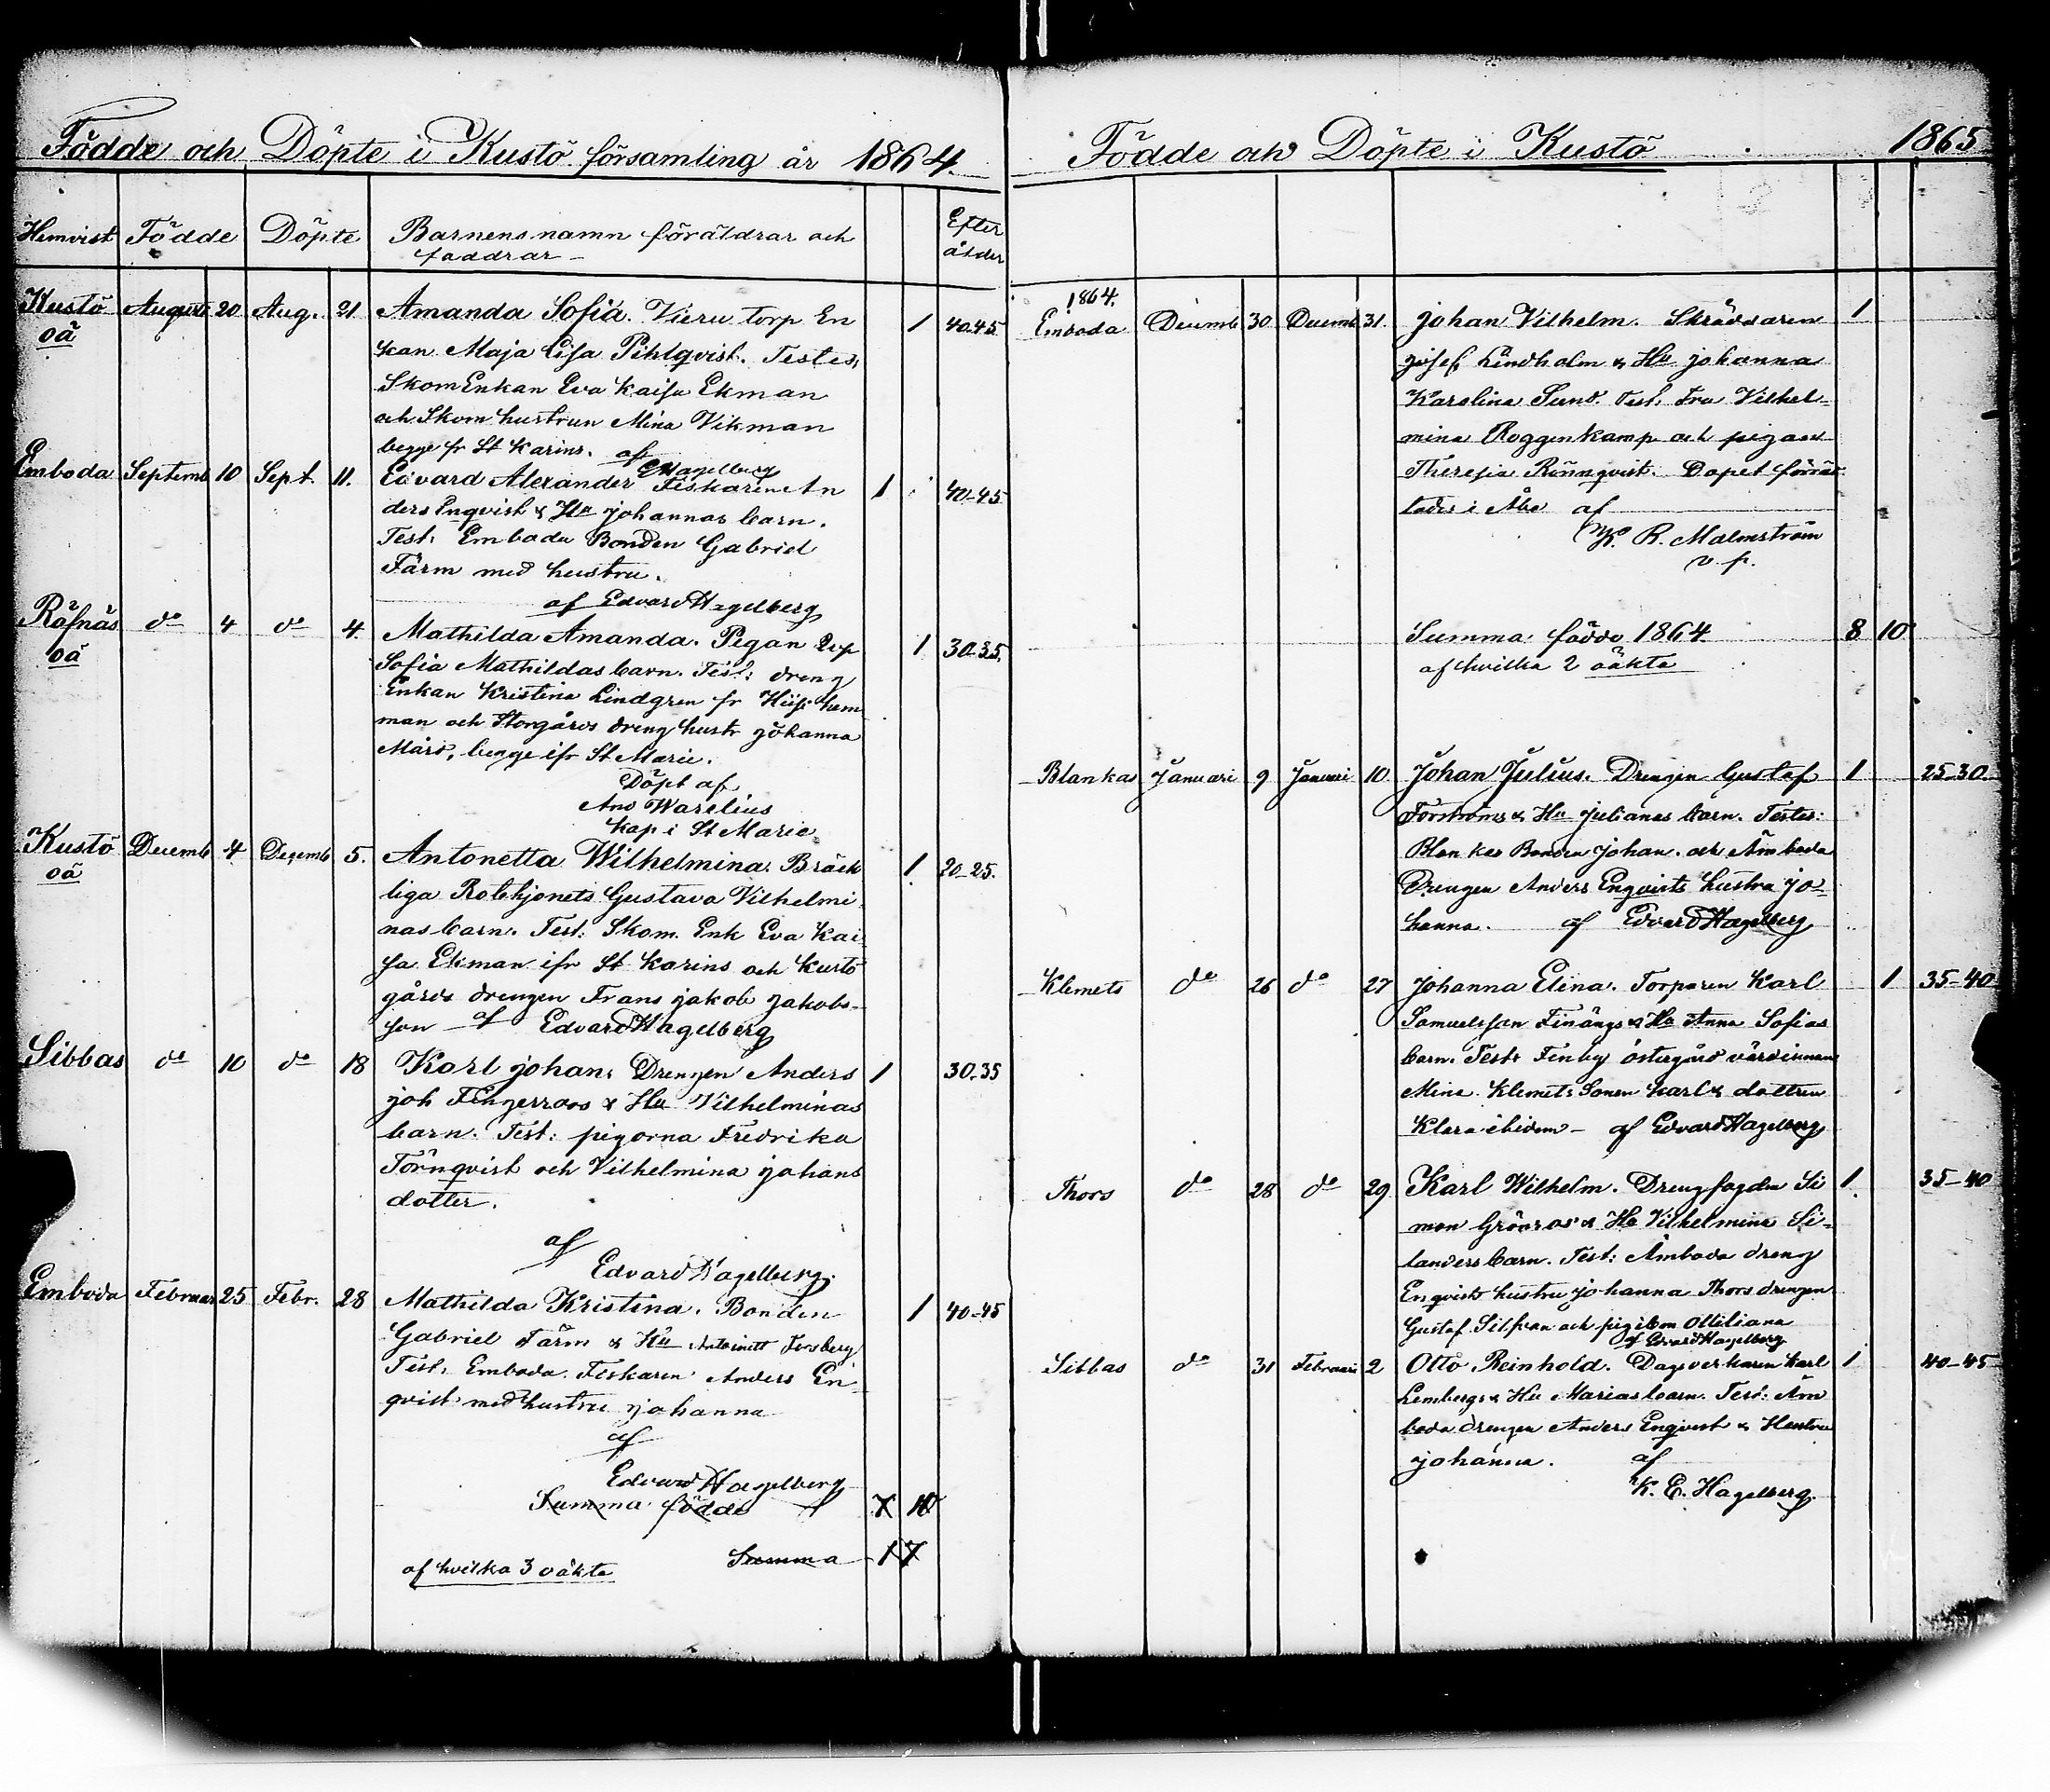 Födde och Döpte i Kustö församling år 1864.
Hemvist Födde Döpte Barnens namn föräldrar och Efter
faddrar ålder
Kustö Augusti 20 Aug. 21 Amanda Sofia. Vieru torp En 1 40-45
oä kan Maja Lisa Pihlqvist. Testes,
Skom Enkan Eva Kaisa Ekman
och Skom hustrun Mina Vikman
begge fr St Karins. af
EHagelberg
Emboda Septemb 10 Sept. 11. Edvard Alexander Fiskaren An 1 40-45
ders Enqvist & Hu Johannas barn.
Test: Emboda Bonden Gabriel
Färm med hustru.
af Edvard Hagelberg
Räfnäs do 4 do 4. Mathilda Amanda. Pigan 1 30-35.
oä Sofia Mathildas barn. Test: dreng
Enkan Kristina Lindgren fr hem
man och Storgårds dreng hustr Johanna
Mård, begge ifr St Marie.
Döpt af
And Warelius
Kap i St Marie
Kustö Decemb 4 Decemb 5. Antonetta Wilhelmina. Bräck 1 20-25.
oä liga Rotehjonets Gustava Vilhelmi
nas barn. Test: Skom. Enk Eva Kai
sa Ekman ifr St Karins och Kustö
gårds drengen Frans Jakob Jakobs
son af Edvard Hagelberg
Sibbas do 10 do 18 Karl Johan. Drengen Anders 1 30-35
Joh Fingerroos & Hu Vilhelminas
barn. Test: pigorna Fredrika
Törnqvist och Vilhelmina Johans
dotter.
af
Edvard Hagelberg.
Emboda Februar 25 Febr. 28 Mathilda Kristina. Bonden 1 40-45
Gabriel Färm & Hu Antoinett Forsberg
Test: Emboda Fiskaren Anders En
qvist med hustru Johanna
af
Edvard Hagelberg
Summa födde 7 10
Summa 17
af hvilka 3 oäkta
Födde och Döpte i Kustö 1865
1864.
Emboda Decemb 30 Decemb 31. Johan Vilhelm. Skräddaren 1
Josef Lindholm & Hu Johanna
Karolina Sund. Test. Fru Vilhel-
mina Roggenkamp och pigan
Theresia Rönnqvist. Dopet förrät
tades i Åbo af
K. R. Malmström
v. p.
Summa födde 1864 8 10
af hvilka 2 oäkta
Blankas Januari 9 Januari 10 Johan Julius. Drengen Gustaf 1 25-30
Forströms & Hu Julianas barn. Testes:
Blankas Bonden Johan. och Ämboda
Drengen Anders Enqvists hustru Jo-
hanna. af Edvard Hagelberg
Klemets do 26 do 27 Johanna Elina. Torparen Karl 1 35-40
Samuelsson Finängs & Hu Anna Sofias
barn. Test: Finby östergård värdinnan
Mina Klemets Sonen Karl & dottren
Klara ibidem - af Edvard Hagelberg
Thors do 28 do 29 Karl Wilhelm. Drengfogden Si 1. 35-40
mon Grönroos & Hu Vilhelmina Si-
landers barn. Test: Ämboda dreng
Enqvists hustru Johanna Thors drengen
Gustaf Silfvan och Ottiliana
af Edvard Hagelberg
Sibbas do 31 Februari 2 Otto Reinhold. Dagsverkaren Karl 1 40-45
Lembergs & Hu Marias barn. Test: Äm
boda drengen Anders Enqvist & Hustru
Johanna. af
K. E. Hagelberg.